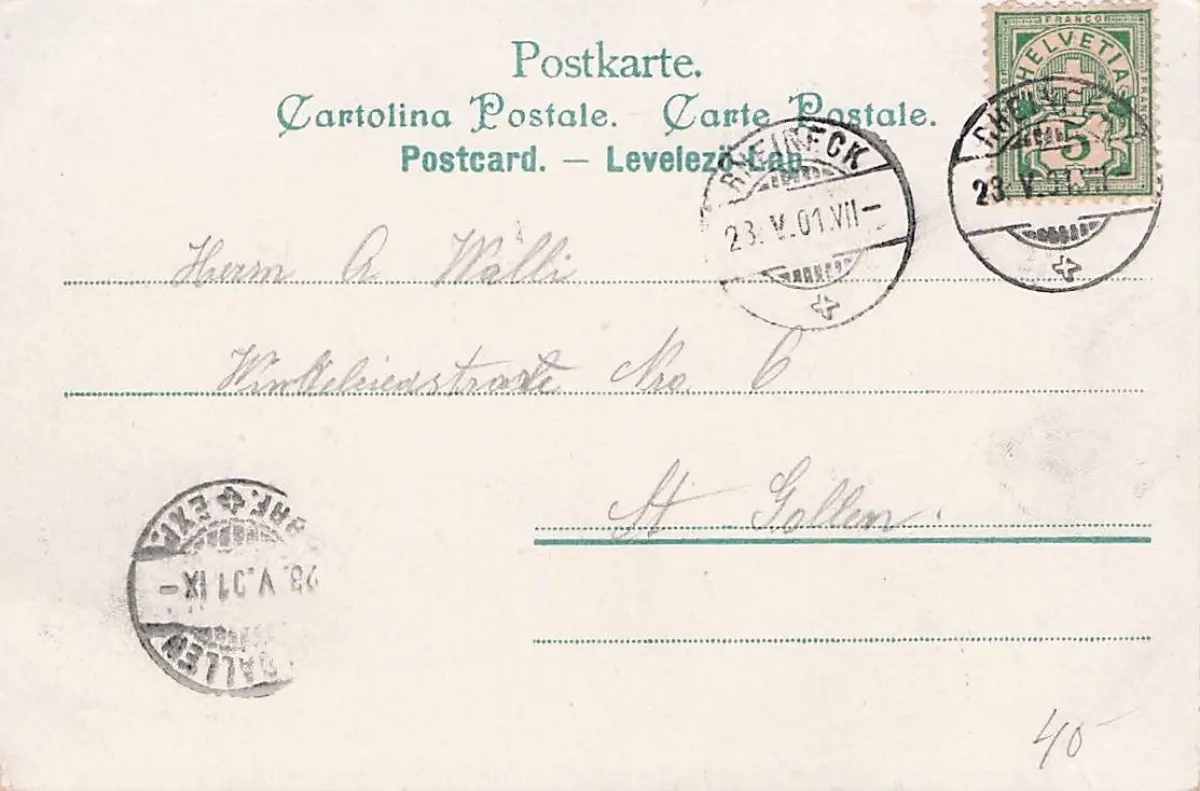 Postkarte.
Cartolina Postale. Carte Postale.
Postcard. — Levelező-Lap.
FRANCO
HELVETIA
5
RHEINECK
23.V.01.VII–
RHEINECK
23.V.01
Herrn A Wälli
Winkelriedstrasse Nro. 6
St Gallen.
BHF. EXP.
23.V.01 IX–
GALLEN
40